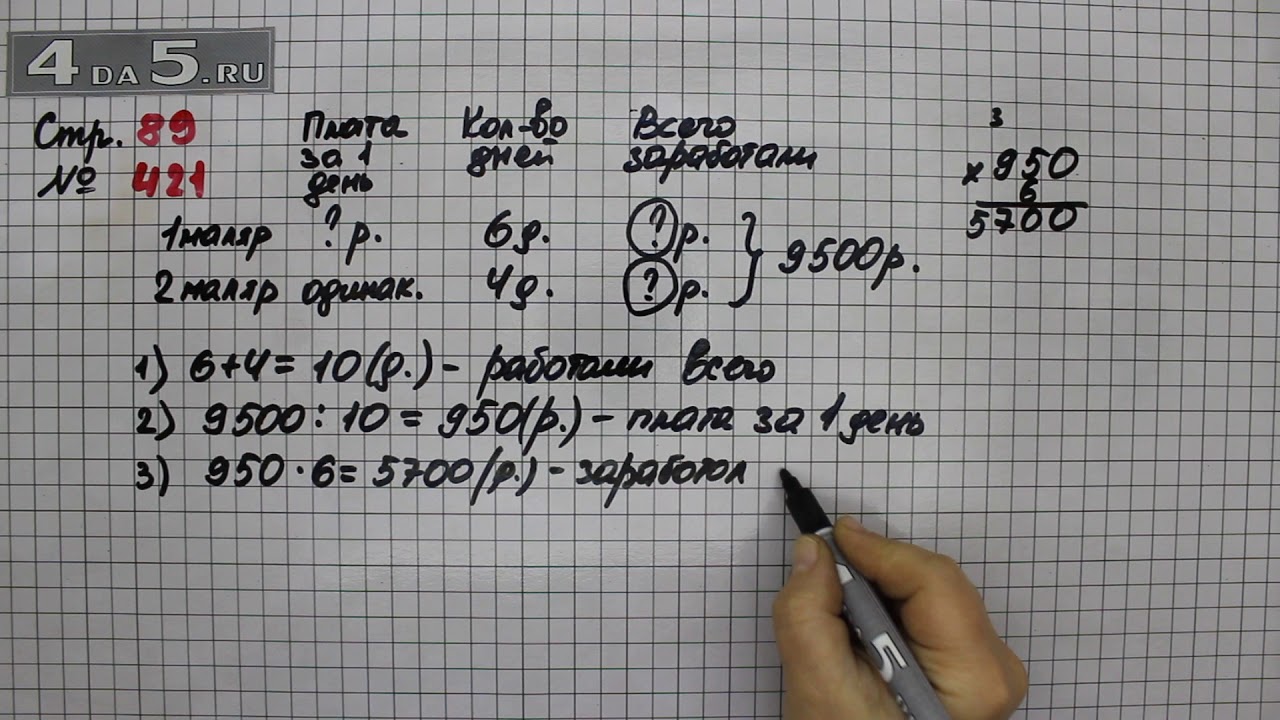 4DA5.RU
Стр. 89
№ 421
Плата за 1 день
Кол-во дней
Всего заработали
1 маляр ? р. 6 д. ? р.
2 маляр одинак. 4 д. ? р.
} 9500 р.
3
× 950
6
5700
1) 6+4= 10 (д.) - работали всего
2) 9500 : 10 = 950 (р.) - плата за 1 день
3) 950 · 6 = 5700 (р.) - заработал
5